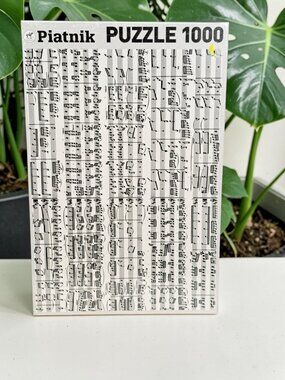 Piatnik PUZZLE 1000